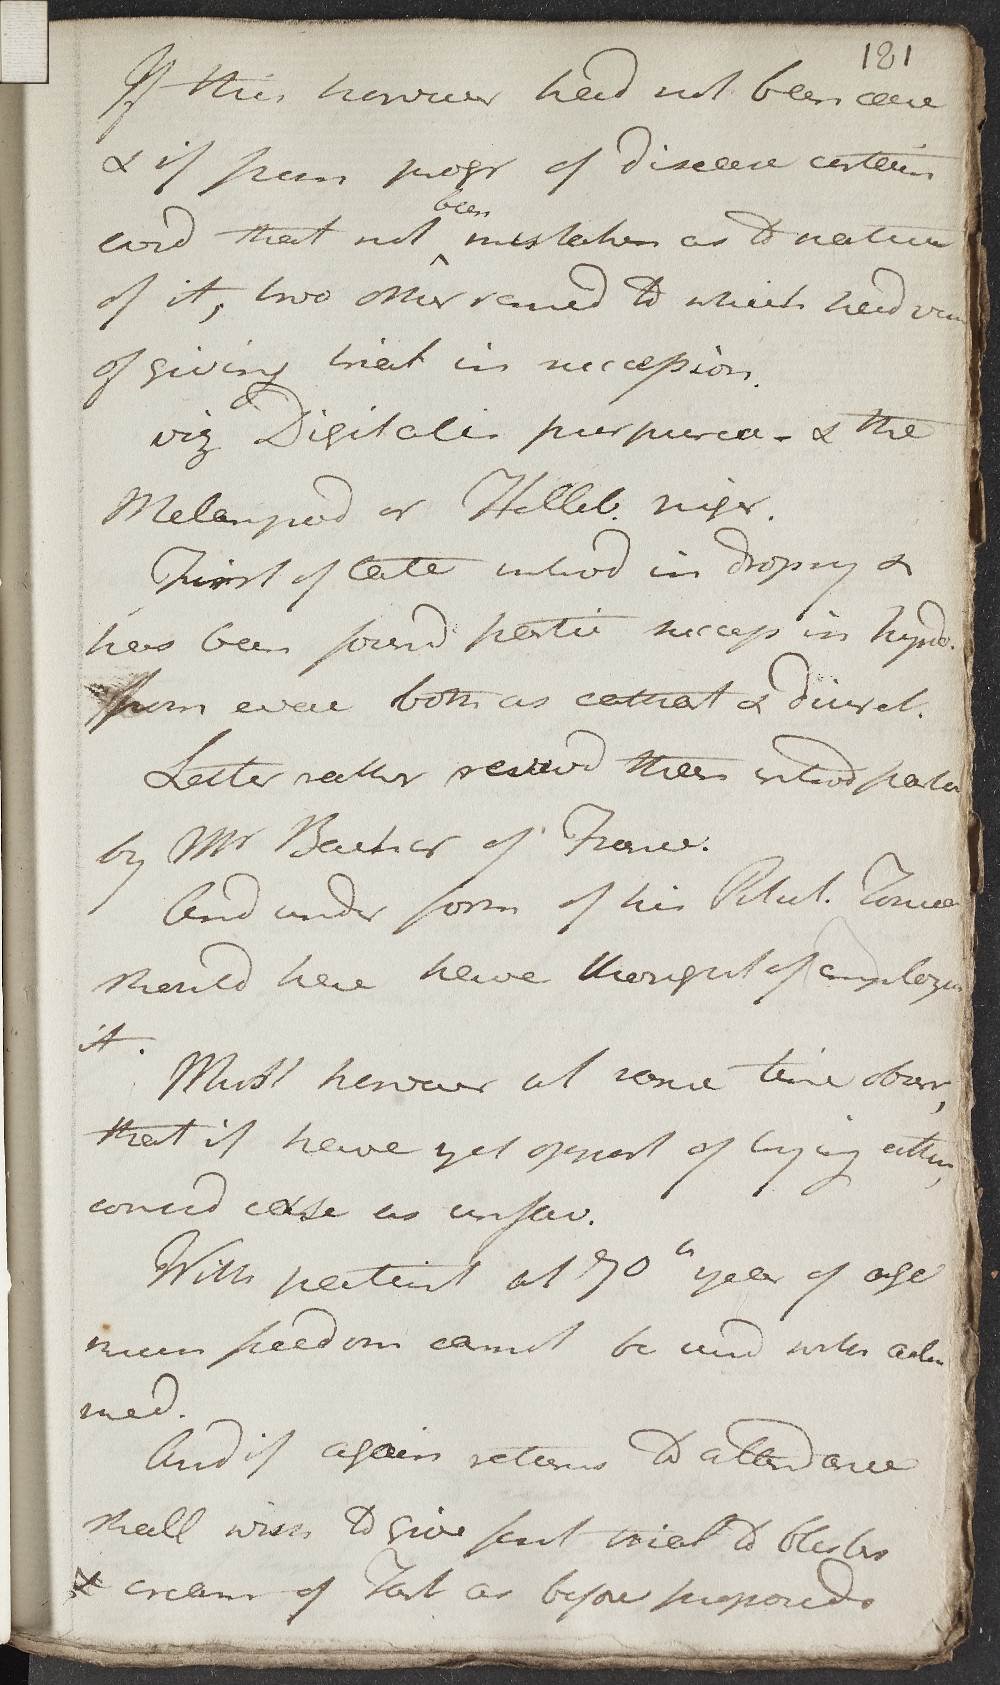 181
If this however had not been case
& if from progr of disease certain
evid that not been mistaken as to nature
of it, two other remed to which had view
of giving trial in succession.
viz Digitalis purpurea - & the
Melampod or Helleb. niger.
First of late introd in dropsy &
has been found partic success in hydro.
from evac both as cathart & diuret.
Latter rather revived than introd
by Mr Bacher of France.
And under form of his Pilul. Tonicæ
should have thought of employing
it.
Must however at same time observ,
that if have yet opport of trying either,
consid case as unfav.
With patient at 70th year of age
much freedom cannot be used with active
med.
And if again returns to attendance
shall wish to give first trial to blisters
& cream of Tart as before proposed